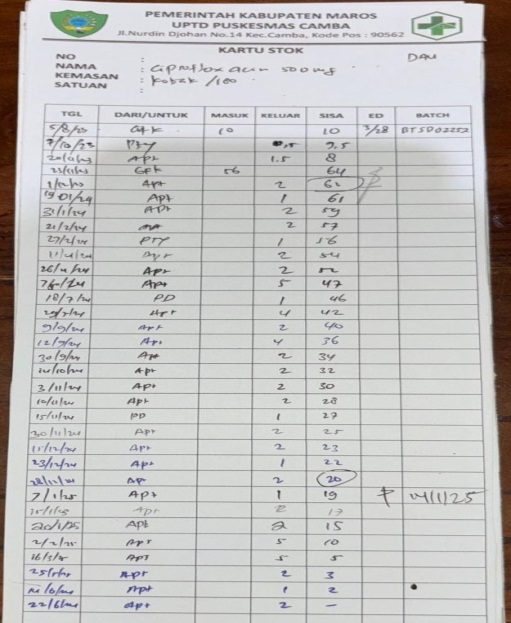 PEMERINTAH KABUPATEN MAROS
UPTD PUSKESMAS CAMBA
Jl.Nurdin Djohan No.14 Kec.Camba, Kode Pos : 90562
KARTU STOK
NO :
DAU
NAMA : Ciprofloxacin 500 mg
KEMASAN : Kotak /100
SATUAN :
TGL DARI/UNTUK MASUK KELUAR SISA ED BATCH
5/8/23 GFK 10 10 3/28
0,5 9,5
Apt 1.5 8
GFK 56 64
Apt 2 62
19/01/24 Apt 1 61
31/1/24 Apt 2 59
21/2/24 2 57
27/2/24 PTY 1 56
Apt 2 54
26/4/24 Apt 2 52
Apt 5 47
18/7/24 PD 1 46
Apt 4 42
9/9/24 Apt 2 40
12/9/24 Apt 4 36
30/9/24 Apt 2 34
14/10/24 Apt 2 32
3/11/24 Apt 2 30
10/11/24 Apt 2 28
15/11/24 PD 1 27
30/11/24 Apt 2 25
11/12/24 Apt 2 23
23/12/24 Apt 1 22
Ap 2 20
7/1/25 Apt 1 19 14/1/25
15/1/25 Apt 2 17
20/1/25 Apt 2 15
2/2/25 Apt 5 10
Apt 5 5
Apt 2 3
Apt 1 2
22/6/24 Apt 2 -